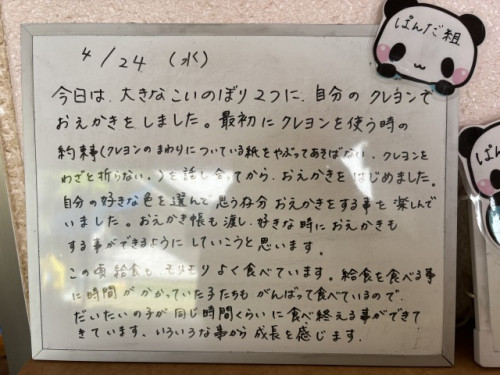 4/24 (水)
ぱんだ組
今日は、大きなこいのぼり2つに、自分のクレヨンで
おえかきをしました。最初にクレヨンを使う時の
約束(クレヨンのまわりについている紙をやぶってあそばない、クレヨンを
わざと折らない。)を話し合ってから、おえかきをはじめました。
自分の好きな色を選んで思うぞ分おえかきをする事を楽しんで
いました。おえかき帳も渡し、好きな時におえかきも
する事ができるようにしていこうと思います。
この頃給食も、モリモリよく食べています。給食を食べる事
に時間がかかっていた子たちもがんばって食べているので、
だいたいの子が同じ時間くらいに食べ終える事ができて
きています、いろいろな事から成長を感じます。
ぱんだ